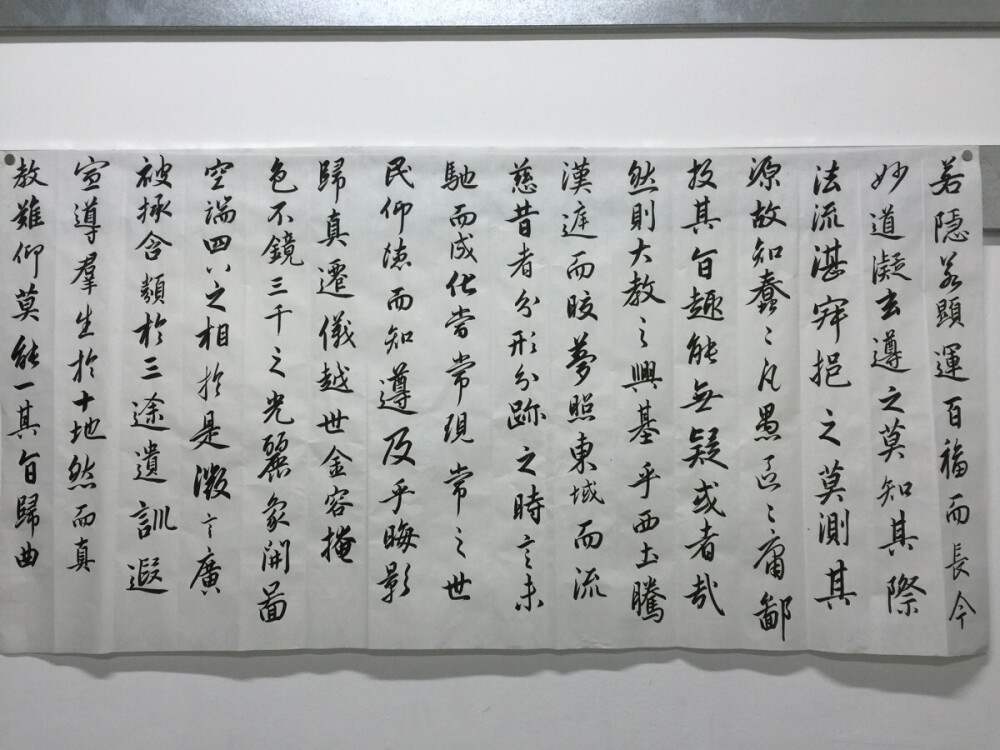 若隱若顯運百福而長今
妙道凝玄遵之莫知其際
法流湛寂挹之莫測其
源故知蠢〻凡愚區〻庸鄙
投其旨趣能無疑或者哉
然則大教之興基乎西土騰
漢庭而皎夢照東域而流
慈昔者分形分跡之時言未
馳而成化當常現常之世
民仰德而知遵及乎晦影
歸真遷儀越世金容掩
色不鏡三千之光麗象開圖
空端四八之相於是微言廣
被拯含類於三途遺訓遐
宣導羣生於十地然而真
教難仰莫能一其旨歸曲